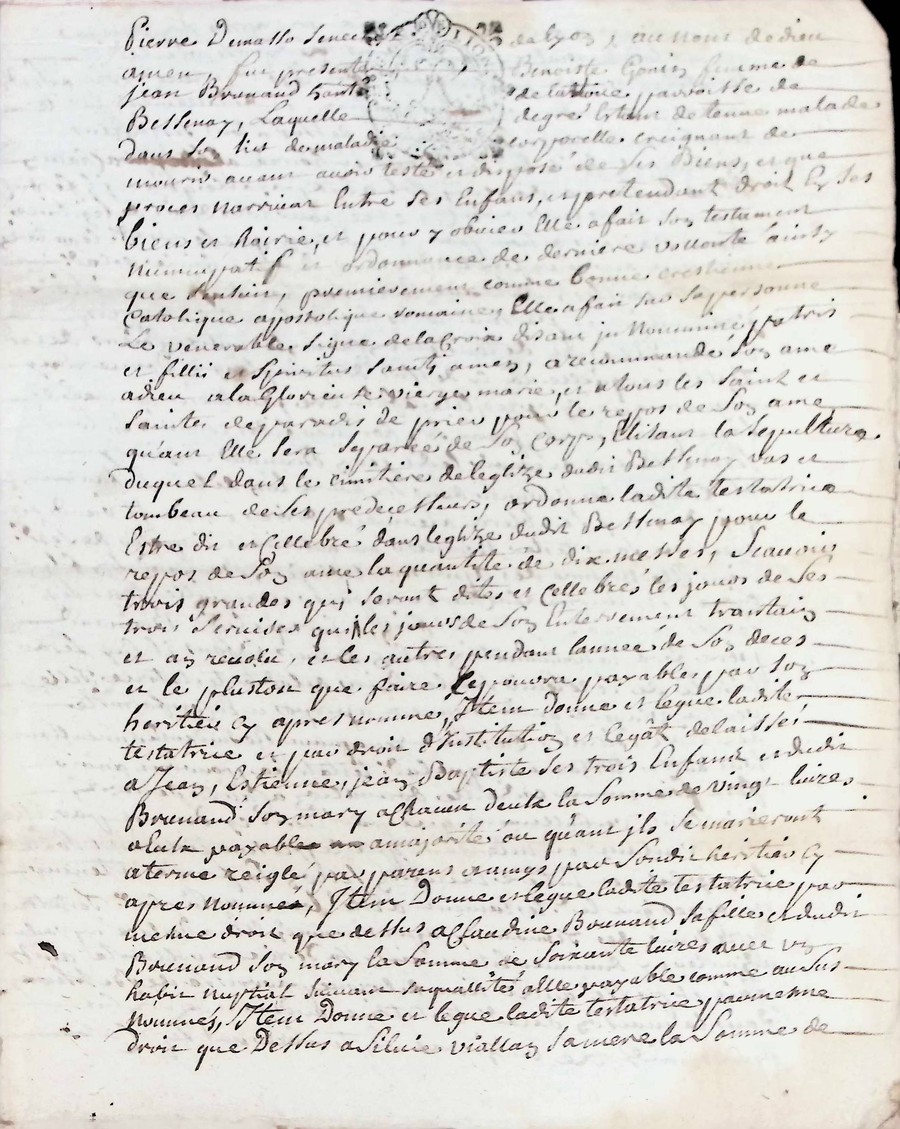 Pierre Demasso Senec de lyon, au nom de dieu
amen, fut presente Benoiste Gonin femme de
jean Brunand hant de latour paroisse de
Bessenay, Laquelle degré Estant detenue malade
dans son lict de maladie corporelle creignant de
mourir avant avoir testé et disposé de ses Biens, et que
proces narrivat Entre ses Enfans, et pretendant droit En ses
biens et hoirie, et pour y obvier Elle a fait son testament
nuncupatif et ordonnance de derniere vollonté ainsy
que senssuit, premierement comme bonne crestienne
Catolique apostolique romaine, Elle a fait sur sa personne
Le venerable signe de la Croix disant jn Nommine patris
et fillii et spiritus santi amen, a recommandé son ame
a dieu a la Glorieuse vierge marie, et a tous les saint et
saintes de paradis de prier pour le repos de son ame
quant Elle sera separée de son corps, Elisant la sepulture
duquel dans le cimitiere de leglize dudit Bessenay vas et
tombeau de ses predecesseurs, ordonne ladite testatrice
Estre dit et Cellebré dans leglize dudit Bessenay pour le
repos de son ame la quantité de dix messes, scauoir
trois grandes qui seront dites et Cellebrés les jours de ses
trois services qui les jours de son Enterrement trantain
et an revolu, et les autres pendant lannée de son deces
et le plustost que faire se pourra payables par son
heritier cy apres nommé, Jtem donne et legue ladite
testatrice et par droit d'Institution et legât delaissé
a Jean, Estienne, jean Baptiste ses trois Enfans et dudit
Brunand son mary a Chacun deuls la somme de vingt livres
a Eulx payable a majorité ou quant jls se marieront
a terme reiglé par parens et amys par sondit heritier cy
apres nommé, Jtem Donne et legue ladite testatrice par
mesme droit que dessus a Claudine Brunand sa fille et dudit
Brunand son mary la somme de soixante livres avec un
habit nuptial suivant sa quallité a Elle payable comme au sus
nommés, Jtem Donne et legue ladite testatrice par mesme
droit que Dessus a Silvie viallon sa mere la somme de